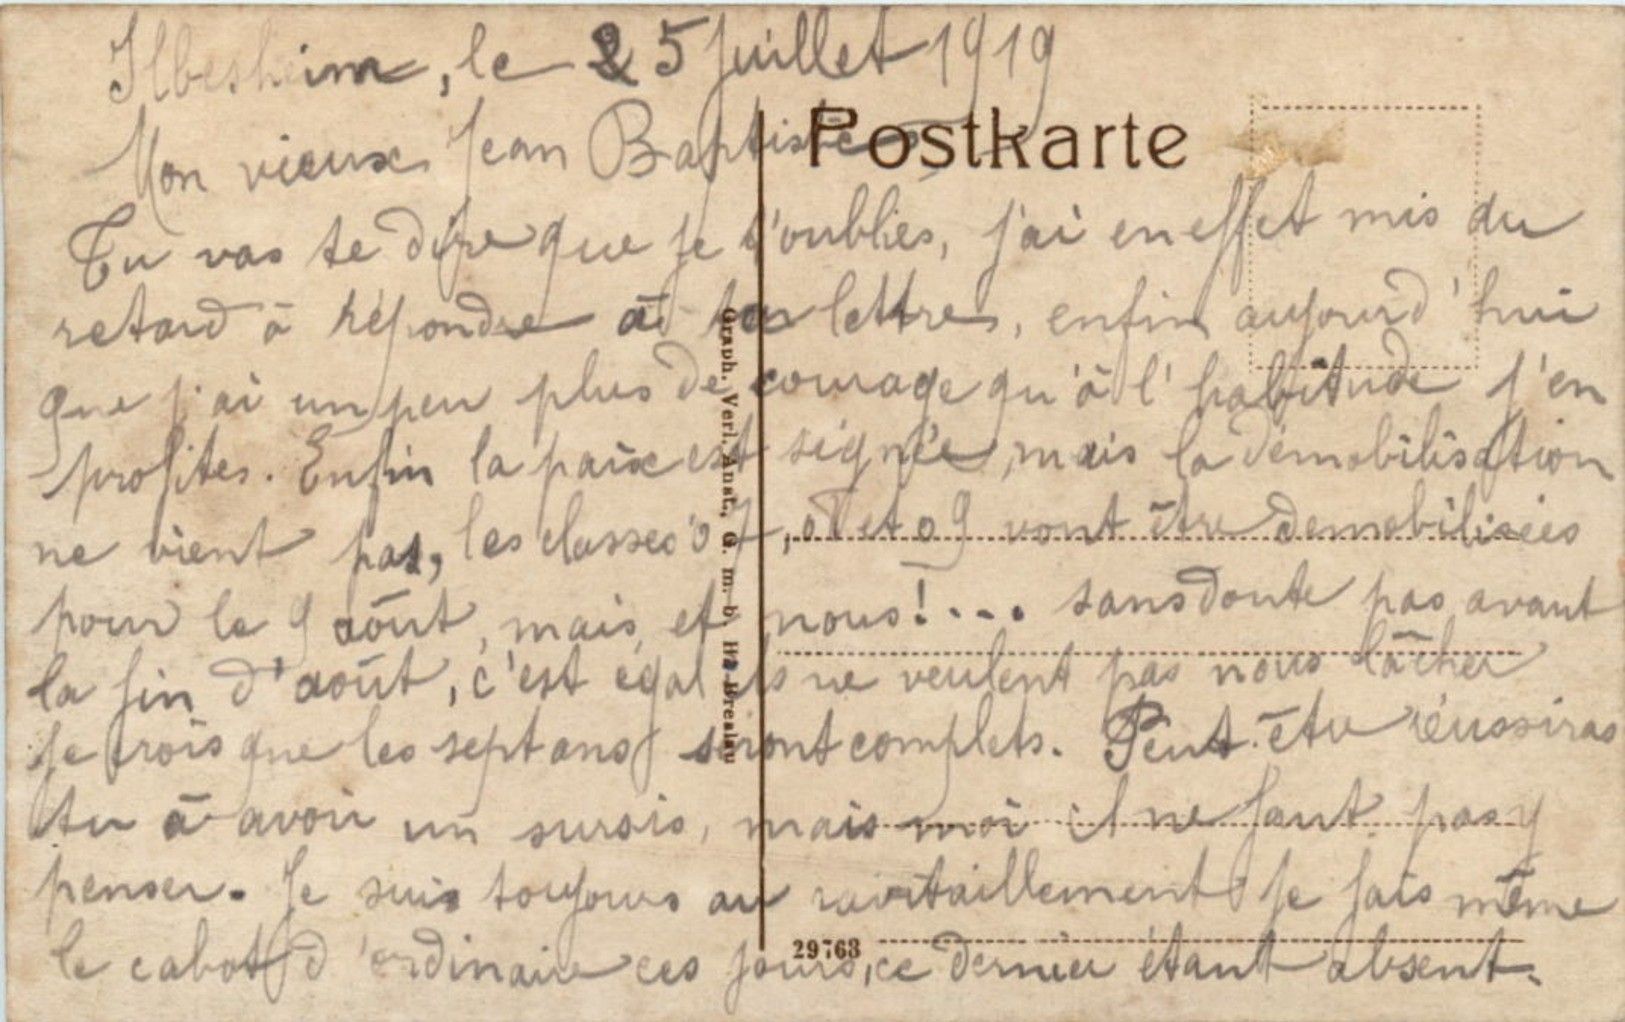 Ilbesheim, le 25 Juillet 1919
Postkarte
Mon vieux Jean Baptiste
Tu vas te dire que je t'oublies, j'ai en effet mis du
retard à répondre à tes lettres, enfin aujourd'hui
que j'ai un peu plus de courage qu'à l'habitude j'en
profites. Enfin la paix est signée, mais la démobilisation
ne vient pas, les classes 07, 08 et 09 vont être demobilisées
pour le 9 août, mais, et nous!... sans doute pas avant
la fin d'août, c'est égal ils ne veulent pas nous lâcher
je crois que les sept ans seront complets. Peut-être réussiras
tu à avoir un sursis, mais moi il ne faut pas y
penser. Je suis toujours au ravitaillement je fais même
le cabot d'ordinaire ces jours, ce dernier étant absent.
Graph. Verl. Anst., G. m. b. H., Breslau
29763